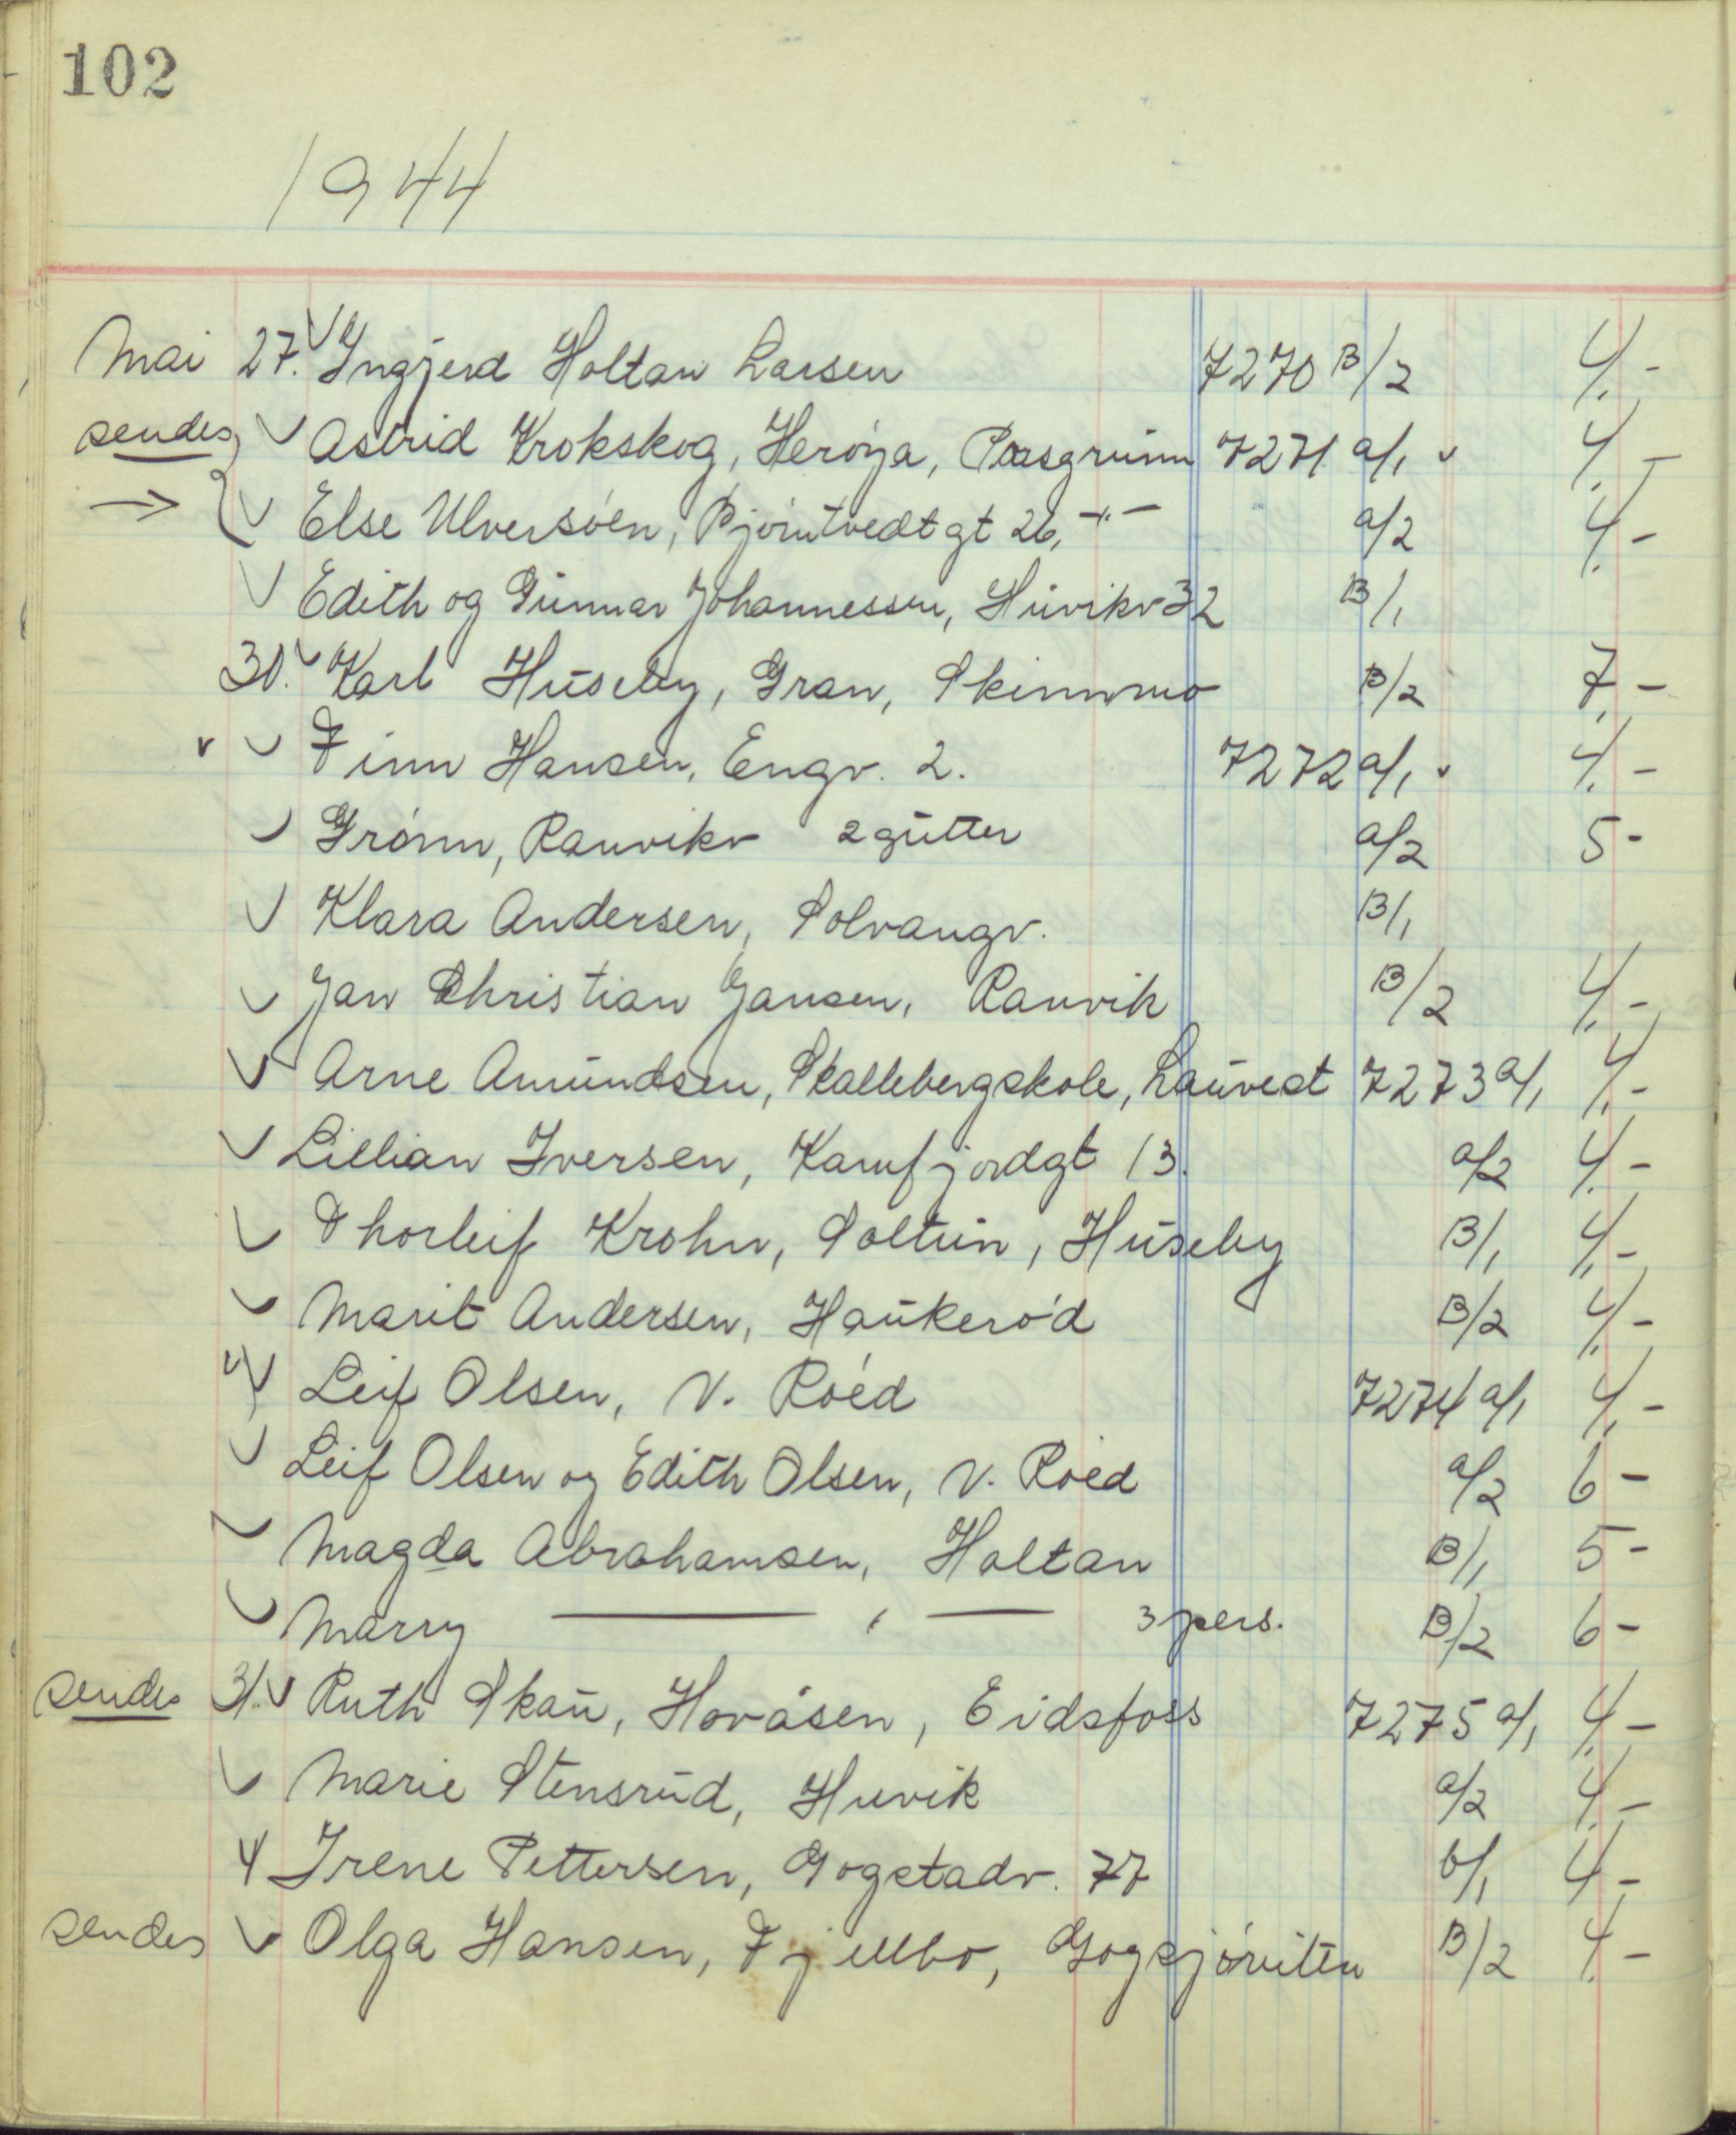 102
1944
Mai 27. Ingjerd Holtan Larsen 7270 B/2 4,-
sendes Astrid Krokskog, Herøya, Porsgrunn 7271 a/1 4,-
→ Else Ulversøen, Bjørntvedtgt 26, -"- a/2 4,-
Edith og Gunnar Johannessen, Huvikv 32 B/1
30. Karl Huseby, Gran, Skinnmo B/2 7,-
Finn Hansen, Engv. 2. 7272 a/1 4,-
Grønn, Ranvikv 2 gutter a/2 5-
Klara Andersen, Solvangv. B/1
Jan Christian Jansen, Ranvik B/2 4,-
Arne Amundsen, Skallebergskole, Lauvest 7273 a/1 4,-
Lillian Iversen, Kamfjordgt 13. a/2 4,-
Thorleif Krohn, Soltun, Huseby B/1 4,-
Marit Andersen, Haukerød B/2 4,-
Leif Olsen, V. Røed 7274 a/1 4,-
Leif Olsen og Edith Olsen, V. Røed a/2 6-
Magda Abrahamsen, Holtan B/1 5-
Marry — , — 3 pers. B/2 6-
sendes 31. Ruth Skau, Hovåsen, Eidsfoss 7275 a/1 4,-
Marie Stensrud, Huvik a/2 4,-
Irene Pettersen, Gogstadv. 77 b/1 4-
sendes Olga Hansen, Fjellbo, B/2 4,-